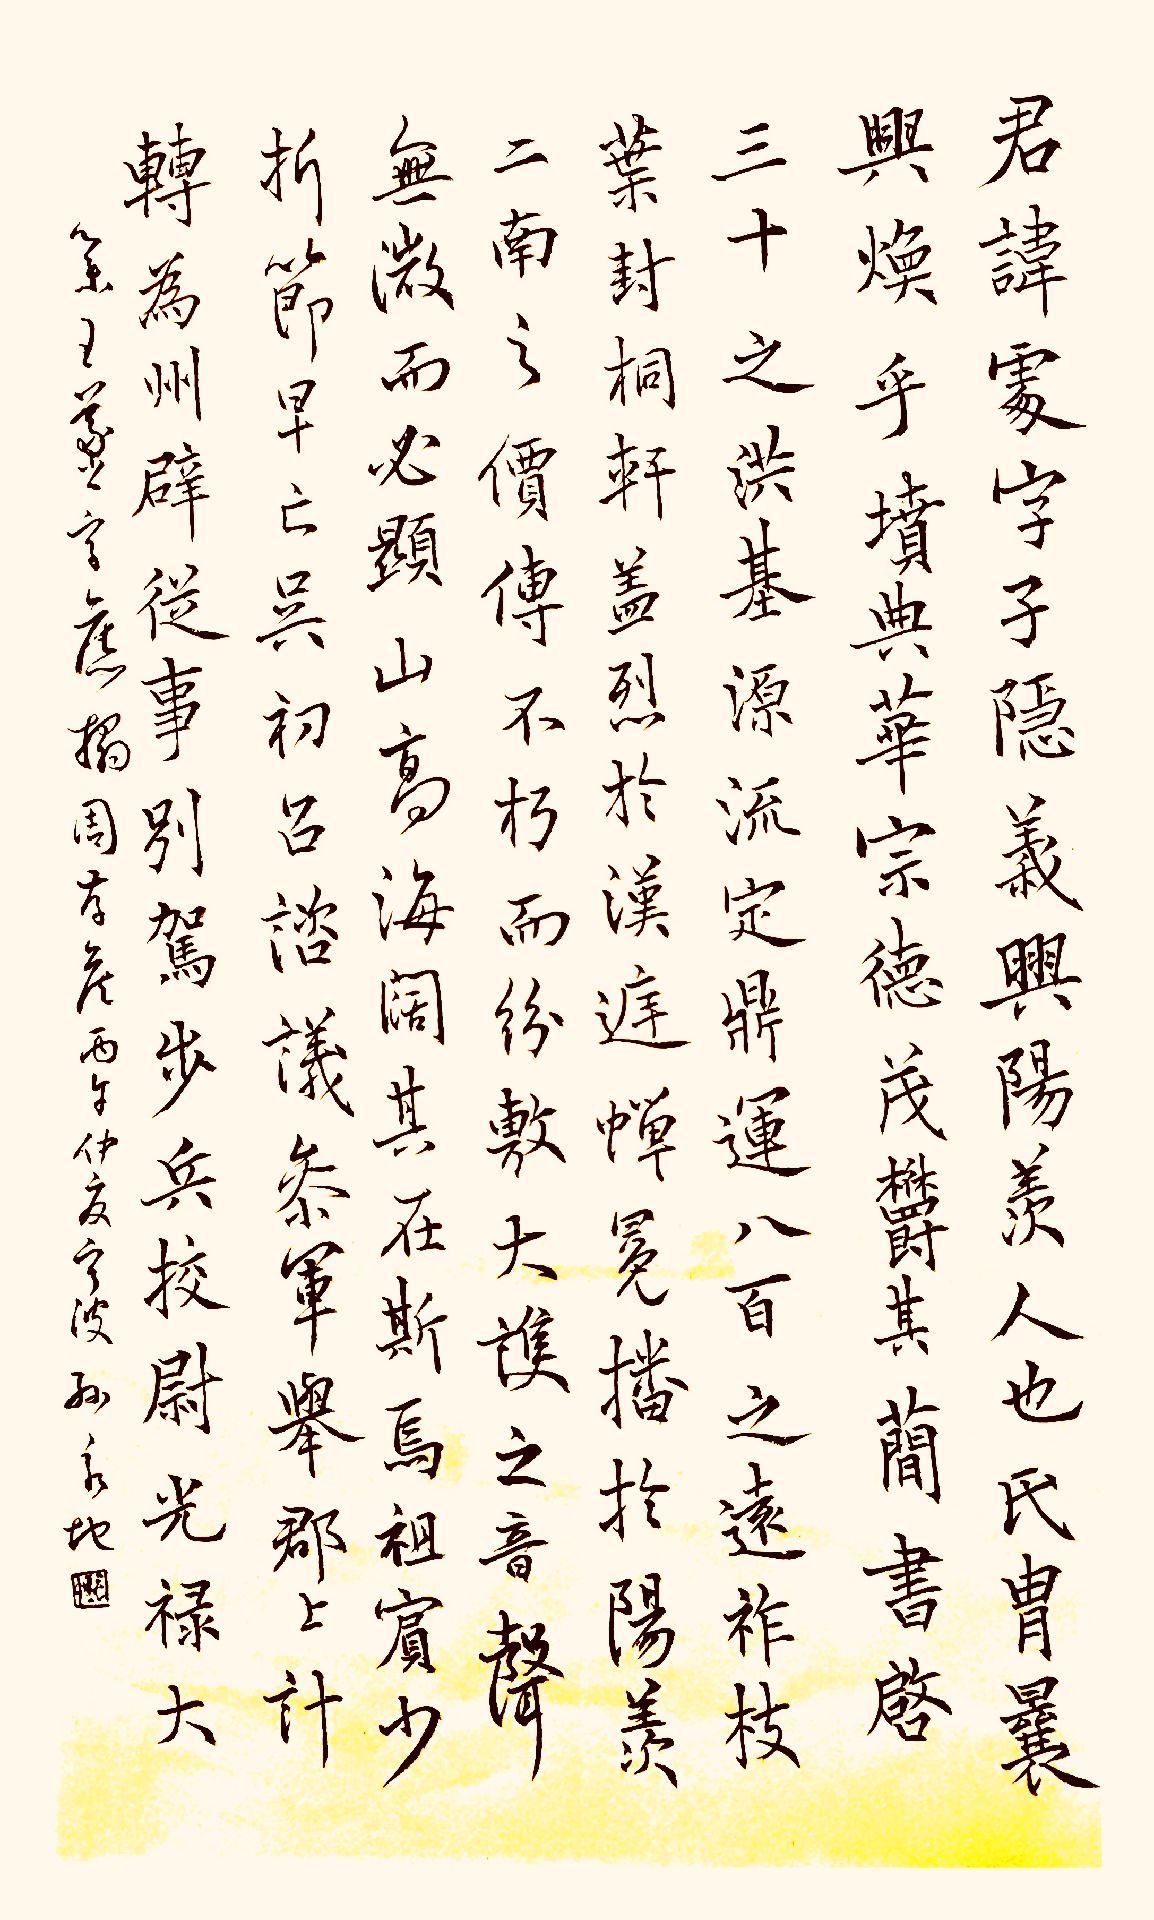 君諱處字子隱義興陽羨人也氏冑曩
興煥乎墳典華宗德茂欝其蕳書啓
三十之洪基源流定鼎運八百之遠祚枝
葉封桐軒盖烈於漢庭蟬冕播於陽羨
二南之價傳不朽而紛敷大護之音聲
無微而必顯山高海闊其在斯焉祖賔少
折節早亡吳初召諮議叅軍舉郡上計
轉為州辟從事別駕步兵挍尉光祿大
王羲字舊搨周孝侯丙午仲夏寧波孫永地